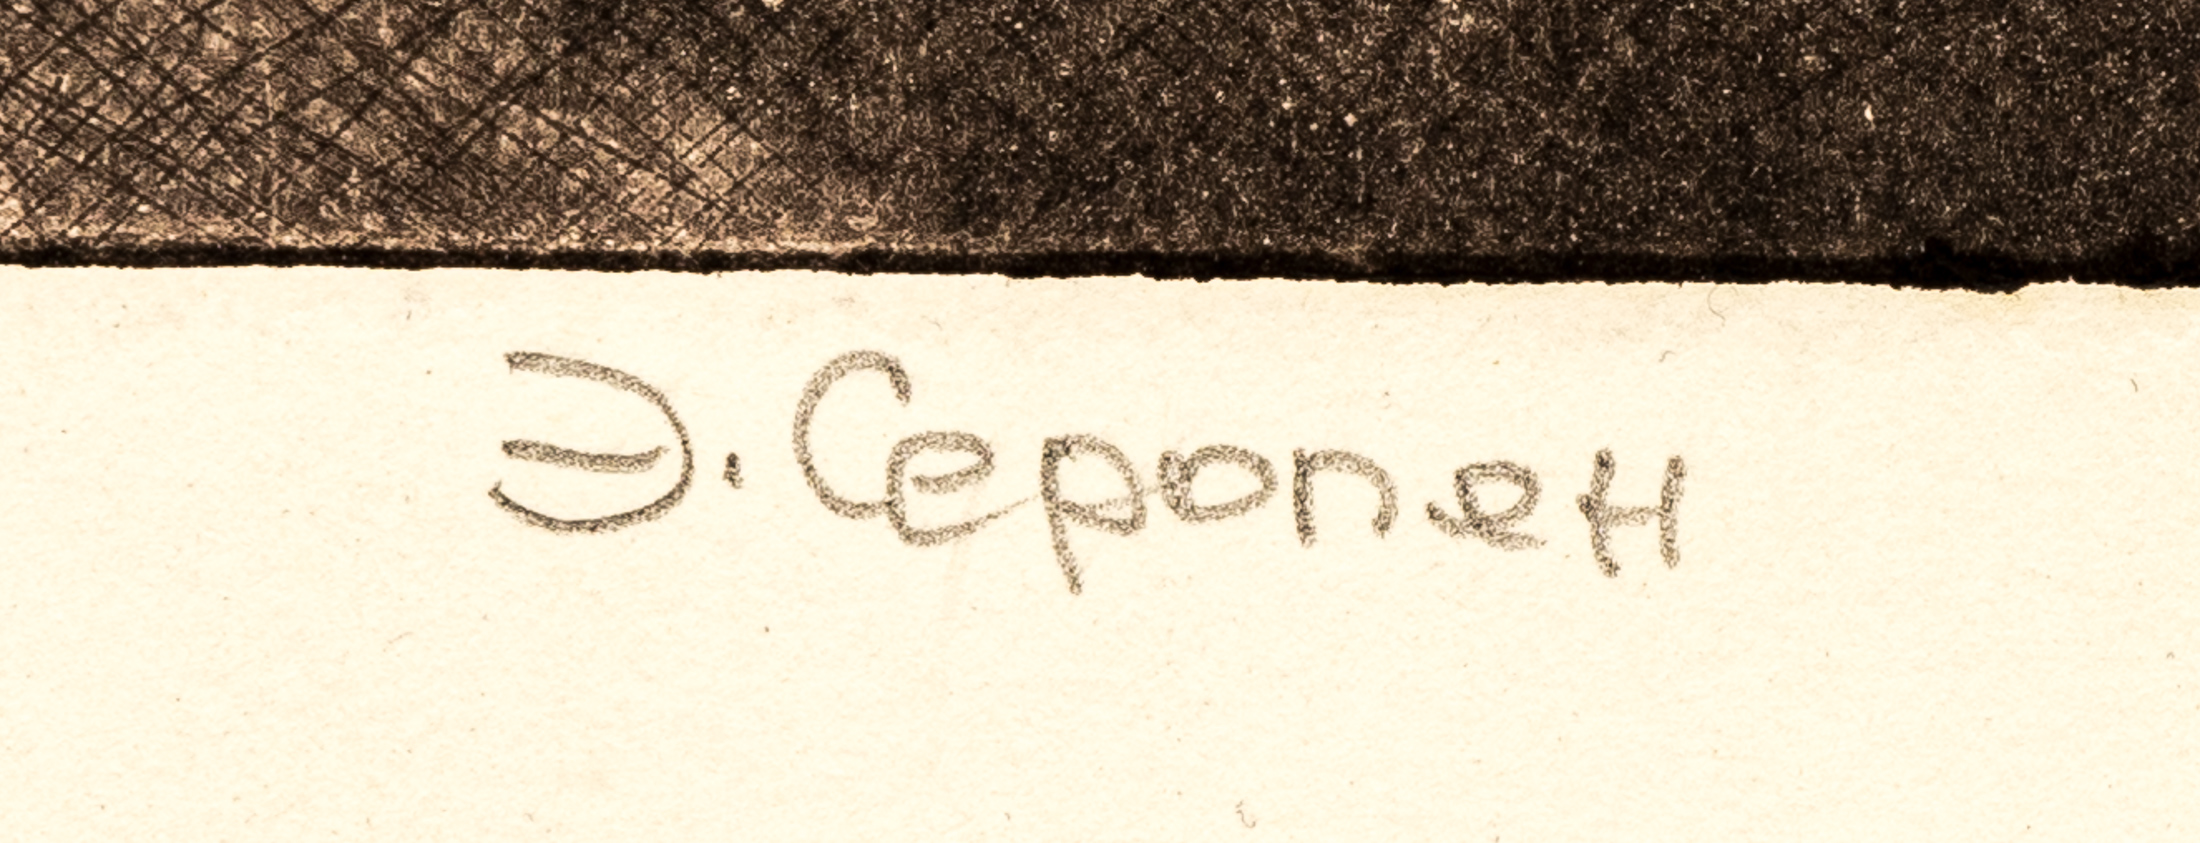 Э. Серопян